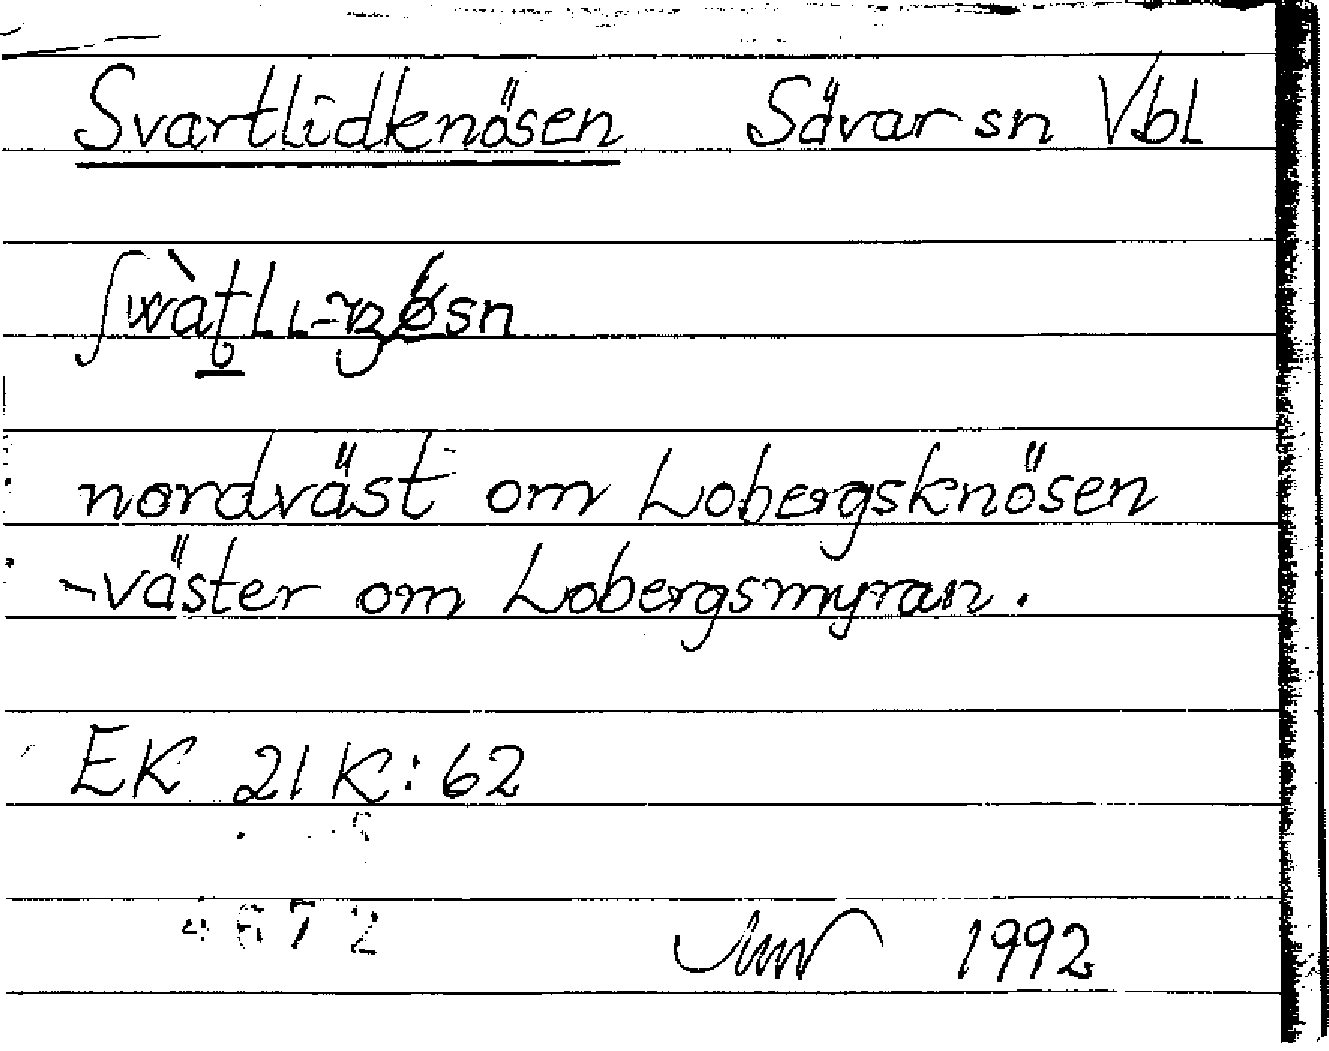 Svartlidknösen Sävar sn Vbl
nordväst om Lobergsknösen
-väster om Lobergsmyran.
EK 21K:62
4672
1992